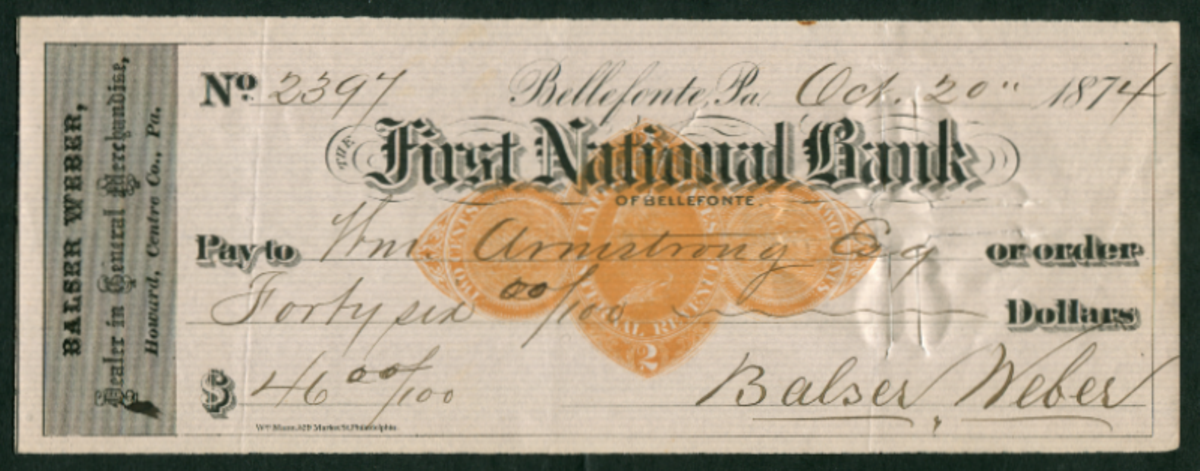 BALSER WEBER,
Dealer in General Merchandise,
Howard, Centre Co., Pa.
No. 2397 Bellefonte, Pa. Oct. 20" 1874
THE First National Bank
OF BELLEFONTE.
Pay to Wm Armstrong Esq or order
Forty six 00/100 Dollars
TWO CENTS
TWO CENTS
2
$ 46 00/100 Balser Weber